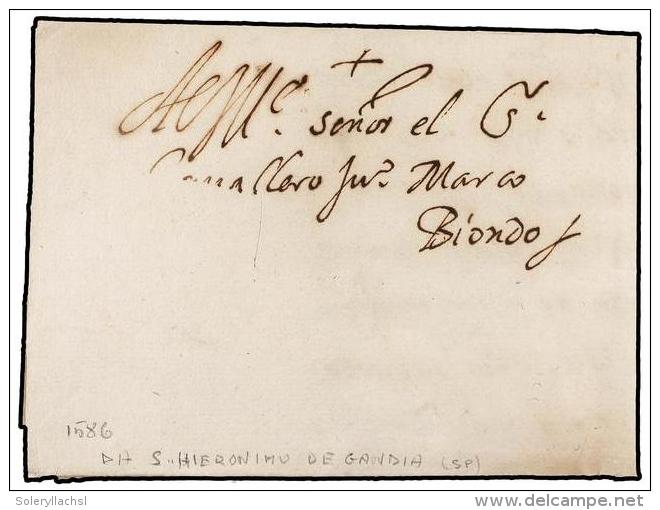 +
Al Mᵉ. señor el Cʳ.
Cauallero Juº. Marco
Biondo
1586
DA S. HIERONIMU DE GANDIA (SP)
Soleryllachsl
©delcampe.net